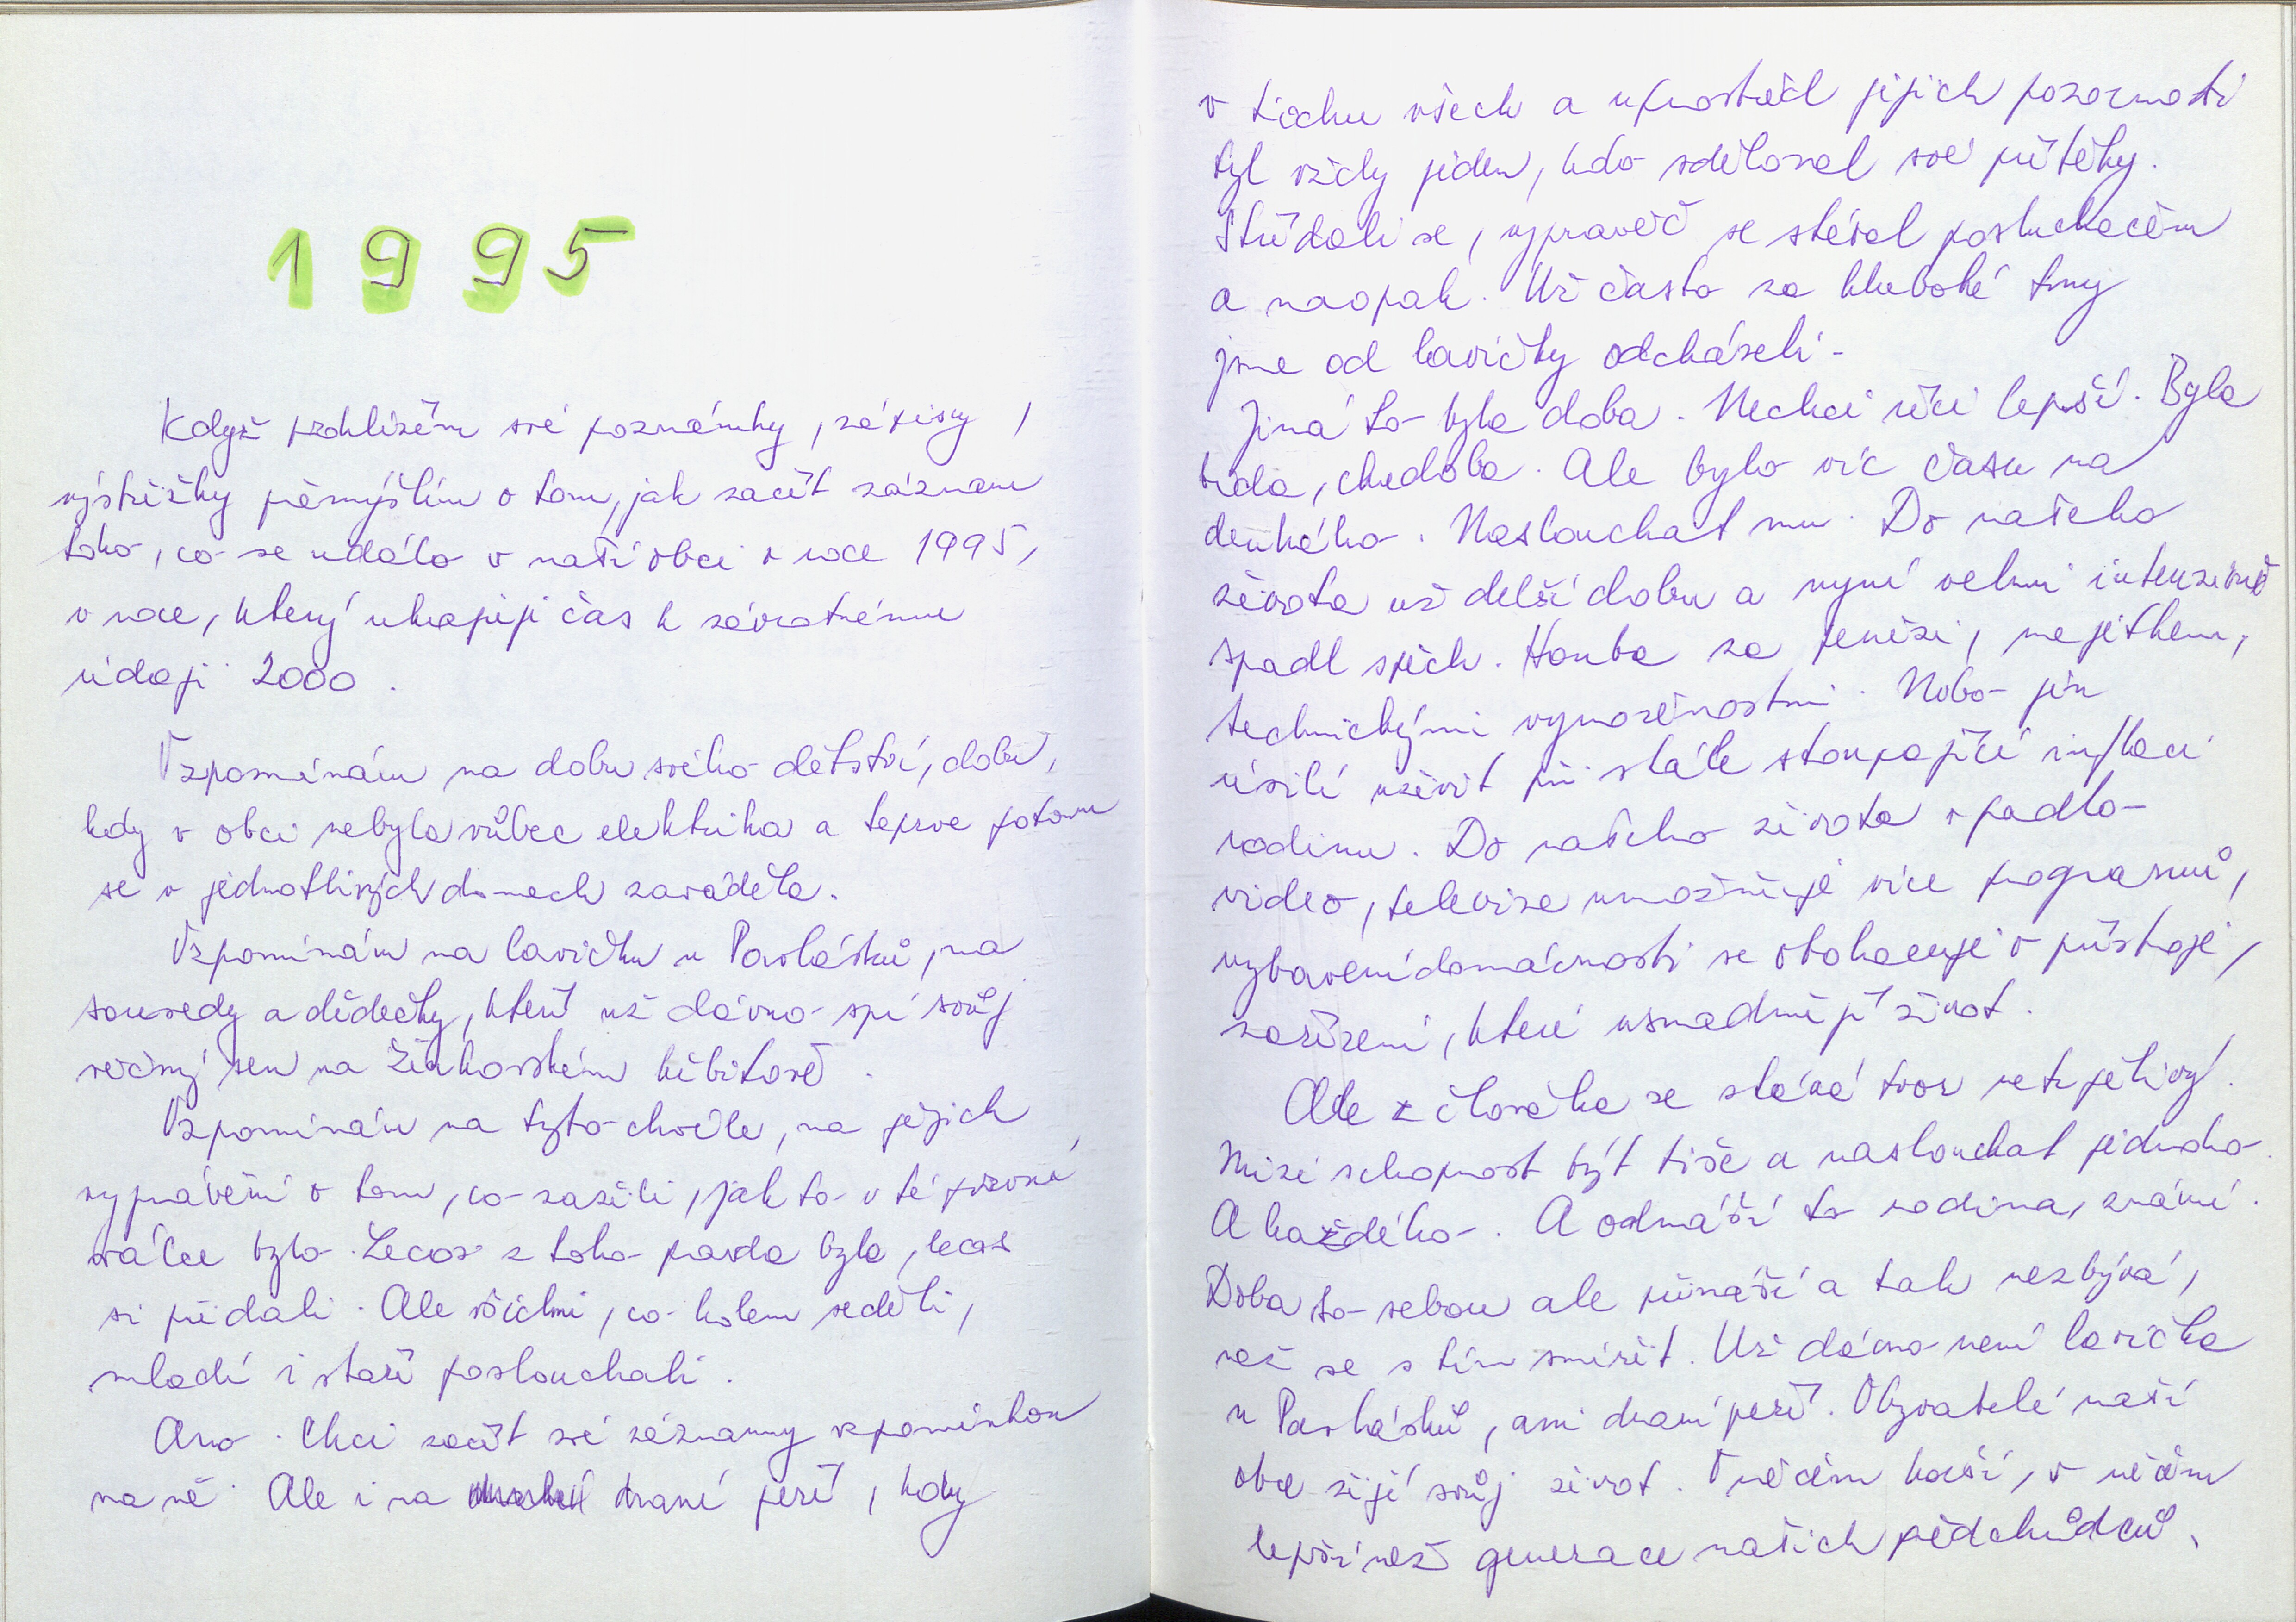 1995
Když prohlížím své poznámky, zápisy,
výstřižky přemýšlím o tom, jak začít záznam
toho, co se událo v naší obci v roce 1995,
v roce, který ukrajuje čas k závratnému
údaji 2000.
Vzpomínám na dobu svého dětství, dobu,
kdy v obci nebyla vůbec elektrika a teprve potom
se v jednotlivých domech zaváděla.
Vzpomínám na lavičku u Pavlásků, na
sousedy a dědečky, kteří už dávno spí svůj
věčný sen na Žinkovském hřbitově.
Vzpomínám na tyto chvíle, na jejich
vyprávění o tom, co zažili, jak to v té první
válce bylo. Lecos z toho pravda byla, lecos
si přidali. Ale všichni, co kolem seděli,
mladí i staří poslouchali.
Ano. Chci začít své záznamy vzpomínkou
na ně. Ale i na draní peří, kdy
v tichu všech a uprostřed jejich pozornosti
byl vždy jeden, kdo sděloval své příběhy.
Střídali se, vypravěč se stával posluchačem
a naopak. Už často za hluboké tmy
jsme od lavičky odcházeli.
Jiná to byla doba. Nechci říci lepší. Byla
bída, chudoba. Ale bylo víc času na
druhého. Naslouchat mu. Do našeho
života už delší dobu a nyní velmi intenzivně
spadl spěch. Honba za penězi, majetkem,
technickými vymoženostmi. Nebo jen
úsilí uživit při stále stoupající inflaci
rodinu. Do našeho života vpadlo
video, televize umožňuje více programů,
vybavení domácnosti se obohacuje o přístroje,
zařízení, které usnadňují život.
Ale z člověka se stává tvor netrpělivý.
Mizí schopnost být tiše a naslouchat jednoho
A každého. A odnáší to rodina, známí.
Doba to sebou ale přináší a tak nezbývá,
než se s tím smířit. Už dávno není lavička
u Pavlásků, ani draní peří. Obyvatelé naší
obce žijí svůj život. V něčem horší, v něčem
lepší než generace našich předchůdců.